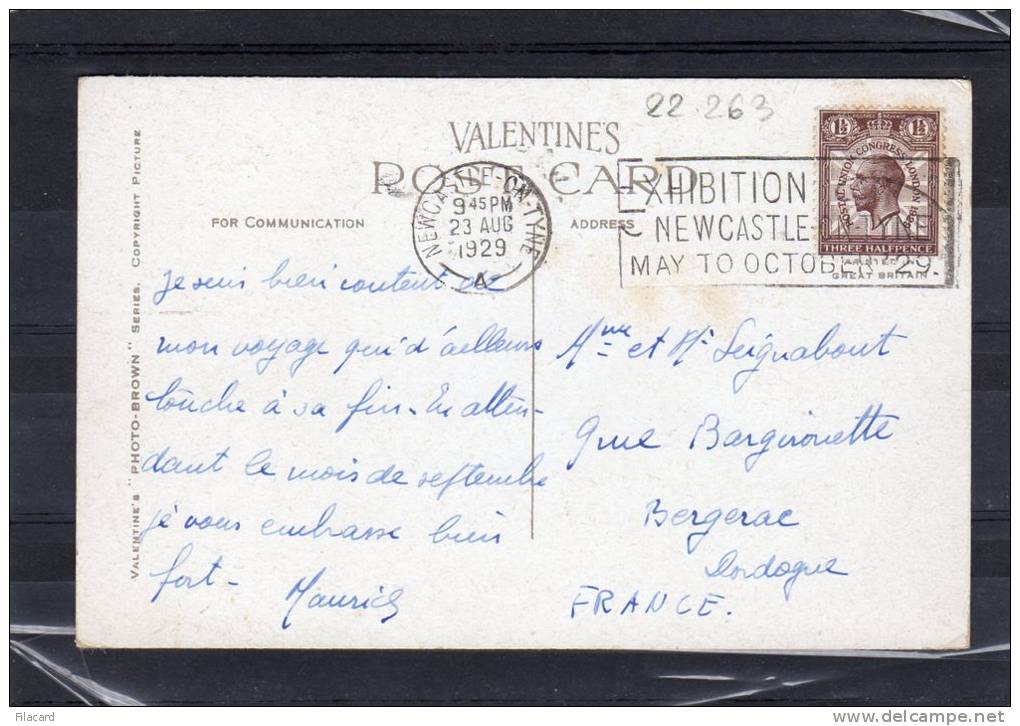 22.263
VALENTINE'S
POST CARD
FOR COMMUNICATION
ADDRESS
NEWCASTLE-ON-TYNE
9 45 PM
23 AUG
1929
A
EXHIBITION
NEWCASTLE
MAY TO OCTOBER 1929.
1½ 1½
POSTAL UNION CONGRESS LONDON 1929
THREE HALFPENCE
PRINTED IN
GREAT BRITAIN
VALENTINE'S "PHOTO-BROWN" SERIES. COPYRIGHT PICTURE
Je suis bien content de
mon voyage qui d'ailleurs
touche à sa fin - En atten-
dant le mois de septembre
je vous embrasse bien
fort -
Maurice
Mme et Mr Seignabout
9 rue Bargironette
Bergerac
Dordogne
FRANCE.
Filacard
www.delcampe.net